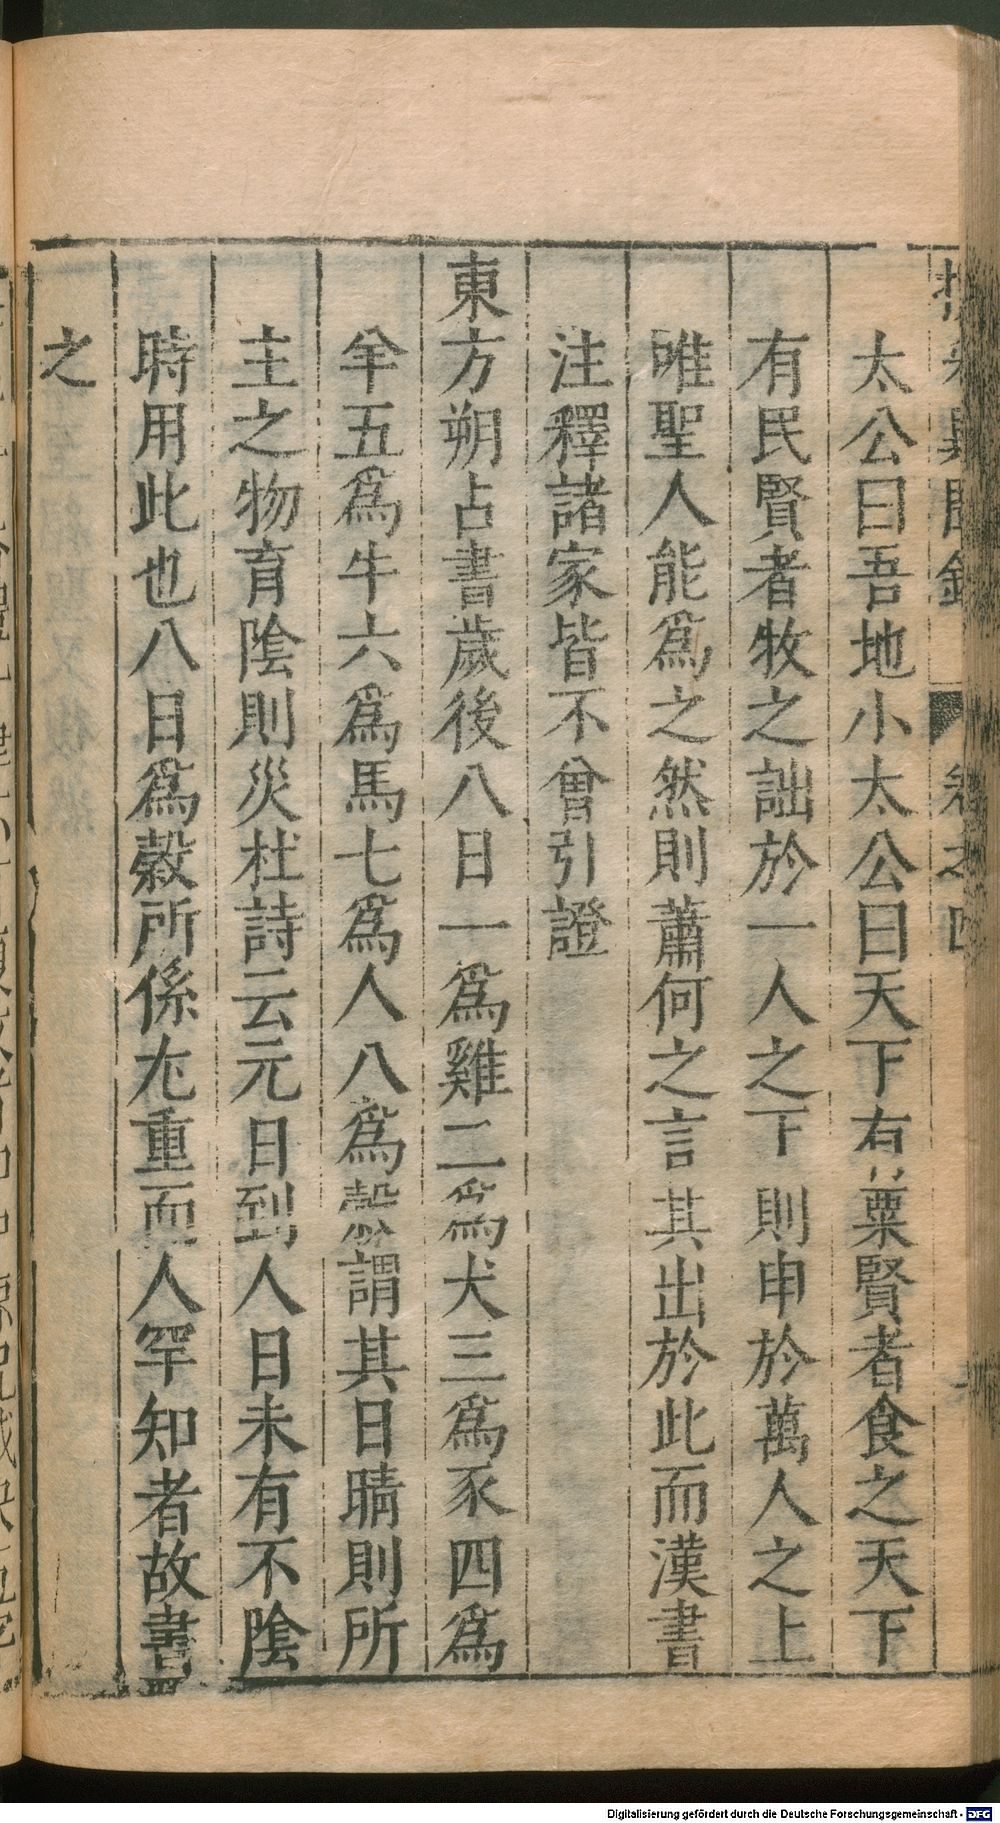 太公曰吾地小太公曰天下有粟賢者食之天下
有民賢者牧之詘於一人之下則申於萬人之上
唯聖人能爲之然則蕭何之言其出於此而漢書
注釋諸家皆不曾引證
東方朔占書歲後八日一爲雞二爲犬三爲豕四爲
羊五爲牛六爲馬七爲人八爲穀謂其日晴則所
主之物育陰則災杜詩云元日到人日未有不陰
時用此也八日爲穀所係尤重而人罕知者故書
之
Digitalisierung gefördert durch die Deutsche Forschungsgemeinschaft - DFG